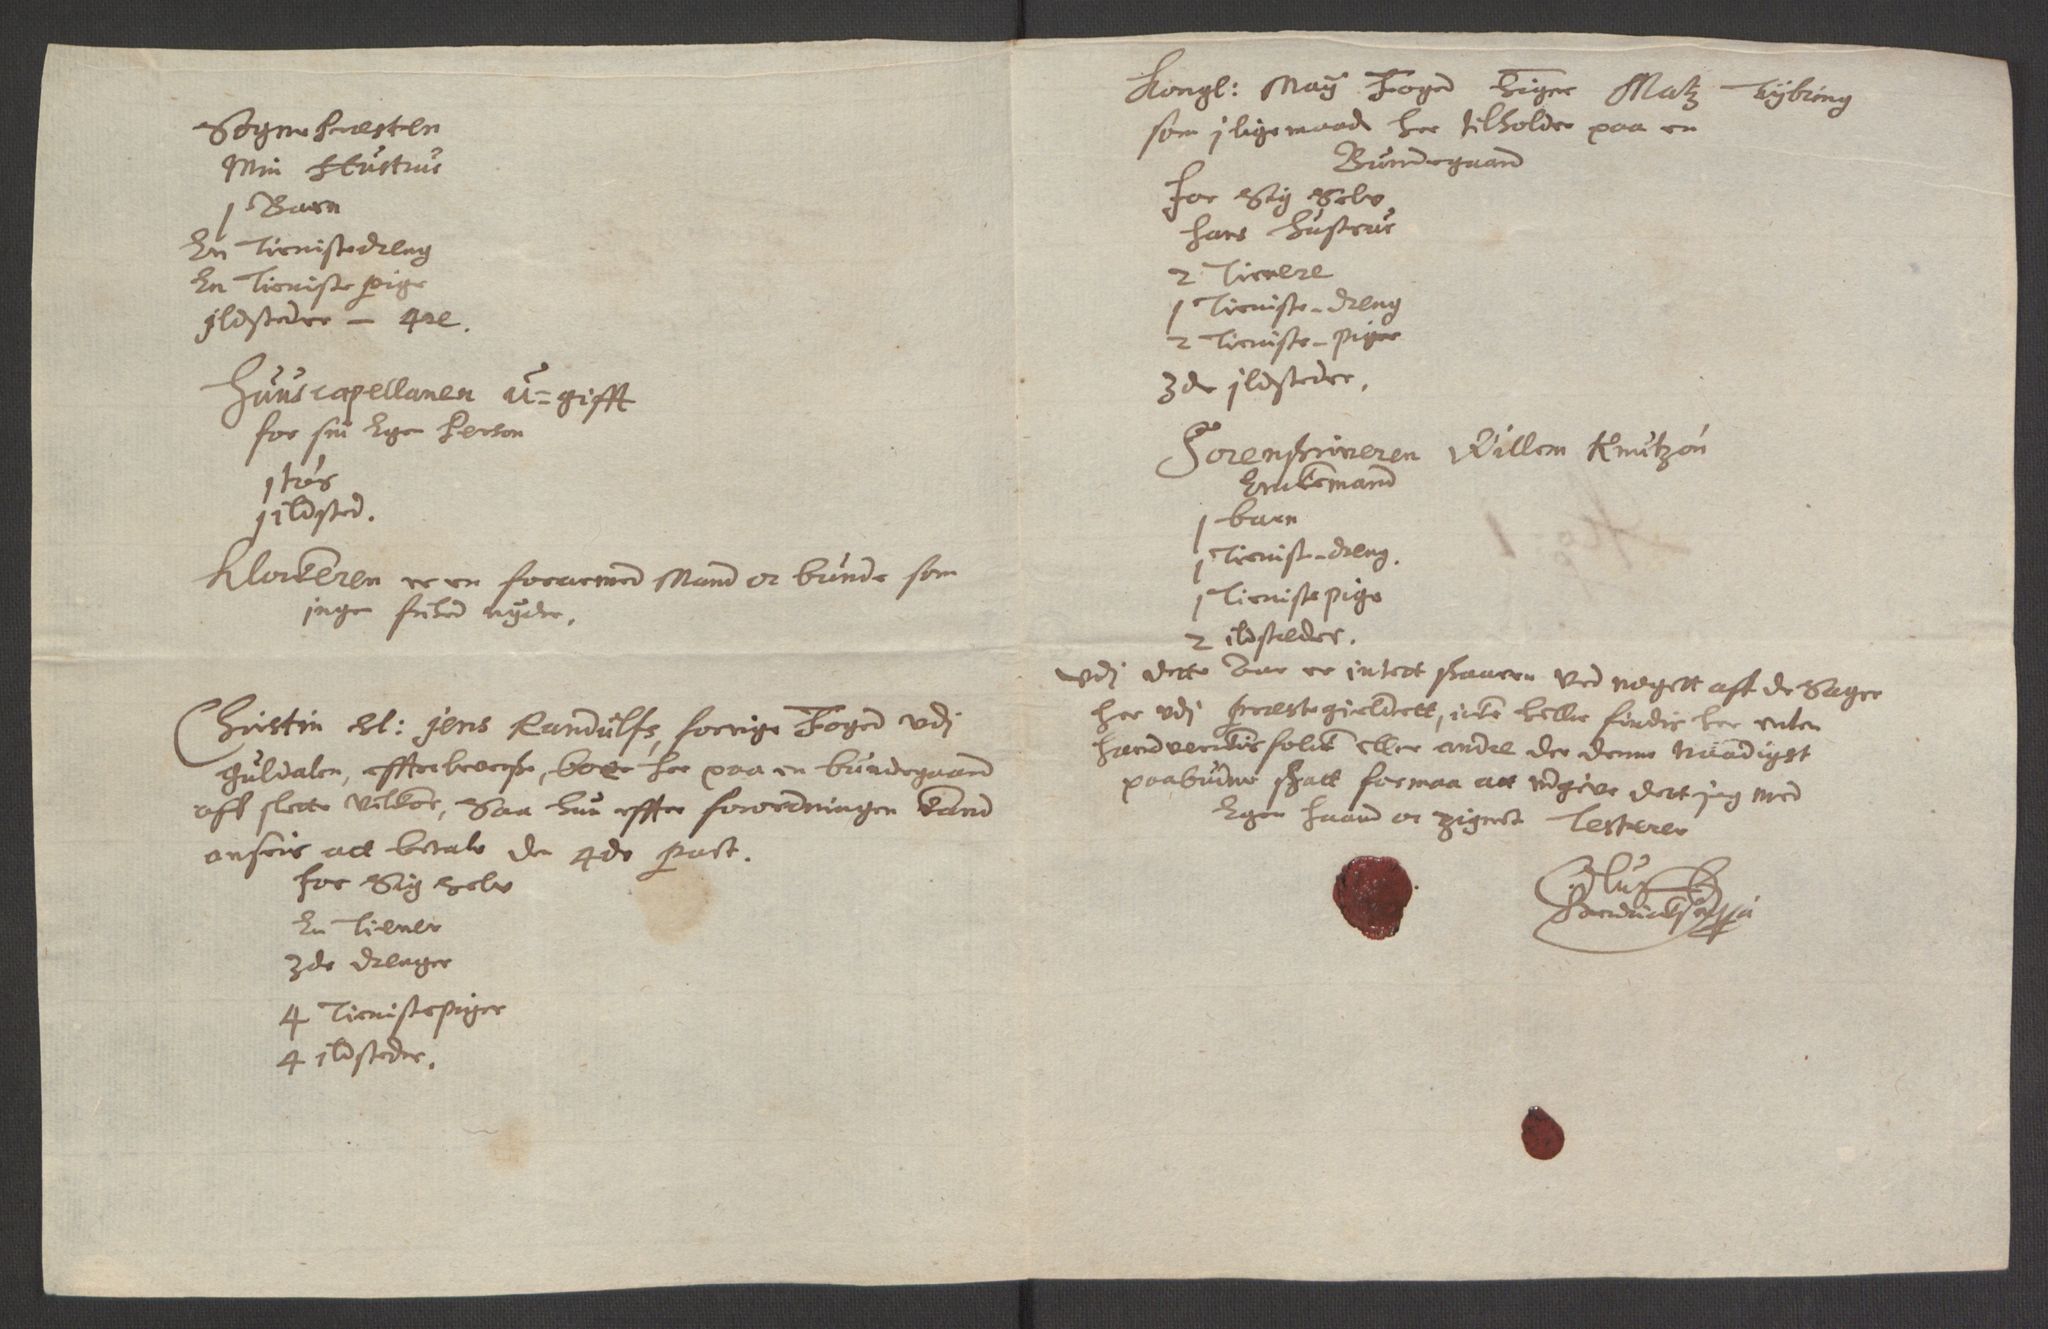 Sognepresten
Min Hustrue
1 Barn
En Tienistedreng
En Tieniste pige
jldsteder – 4re.
Huuscapellanen u=gifft
for sin Egen Person
1 tøs
1 ildsted.
Klockeren er en forarmed Mand oc bunde som
ingen frihed nyder.
Christin Sl: Jens Randulfs, forrige Foged vdj
Guldalen, effterleverske, boer her paa en bundegaard
aff slette vilkor, Saa hun effter forordningen kand
ansees att betale den 4de part.
for Sig Selv
En Tiener
3de drenger
4 Tienistepiger
4 ildsteder.
Kongl: May Foged Matz Tybring
som j lige maade her tilholder paa en
Bundegaard
for Sig Selv
hans hustrue
2 Tienere
1 Tieniste-dreng
2 Tieniste-piger
3de jldsteder.
Sorenskriveren Willem Knutzøn
Enckemand
1 barn
1 Tieniste-dreng.
1 Tieniste pige
2 ildsteder.
Vdj dette Aar er intett faaren ved nogett aff de Sager
her vdj prestegieldett, icke heller findis her enten
handverckis folck eller andre der denne Naadigst
paabudne skatt formaa att udgive dett jeg med
Egen haand oc zignete Testerer